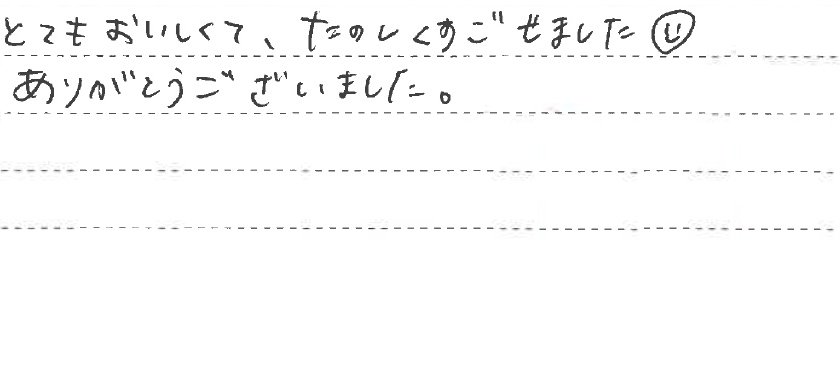 とてもおいしくて、たのしくすごせました☺
ありがとうございました。